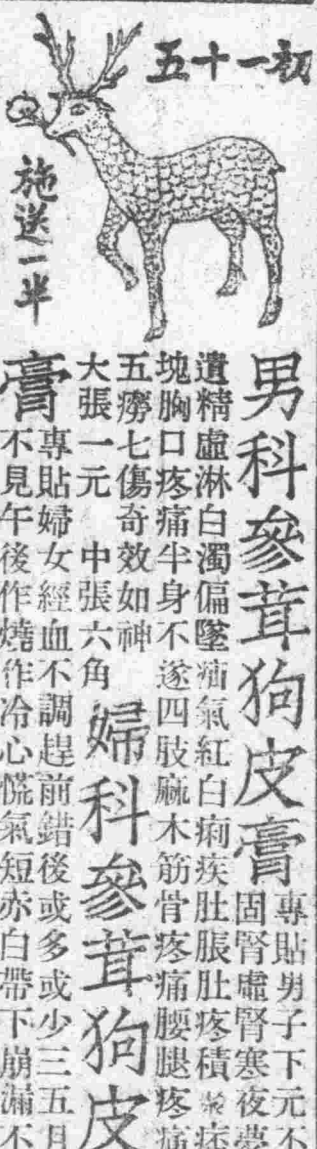 初一十五
施送一半
男科參茸狗皮膏
專貼男子下元不
固腎虛腎寒夜夢
遺精虛淋白濁偏墜疝氣紅白痢疾肚脹肚疼積聚痞
塊胸口疼痛半身不遂四肢麻木筋骨疼痛腰腿疼痛
五癆七傷奇效如神
大張一元　中張六角
婦科參茸狗皮
膏
專貼婦女經血不調趕前錯後或多或少三五月
不見午後作燒作冷心慌氣短赤白帶下崩漏不